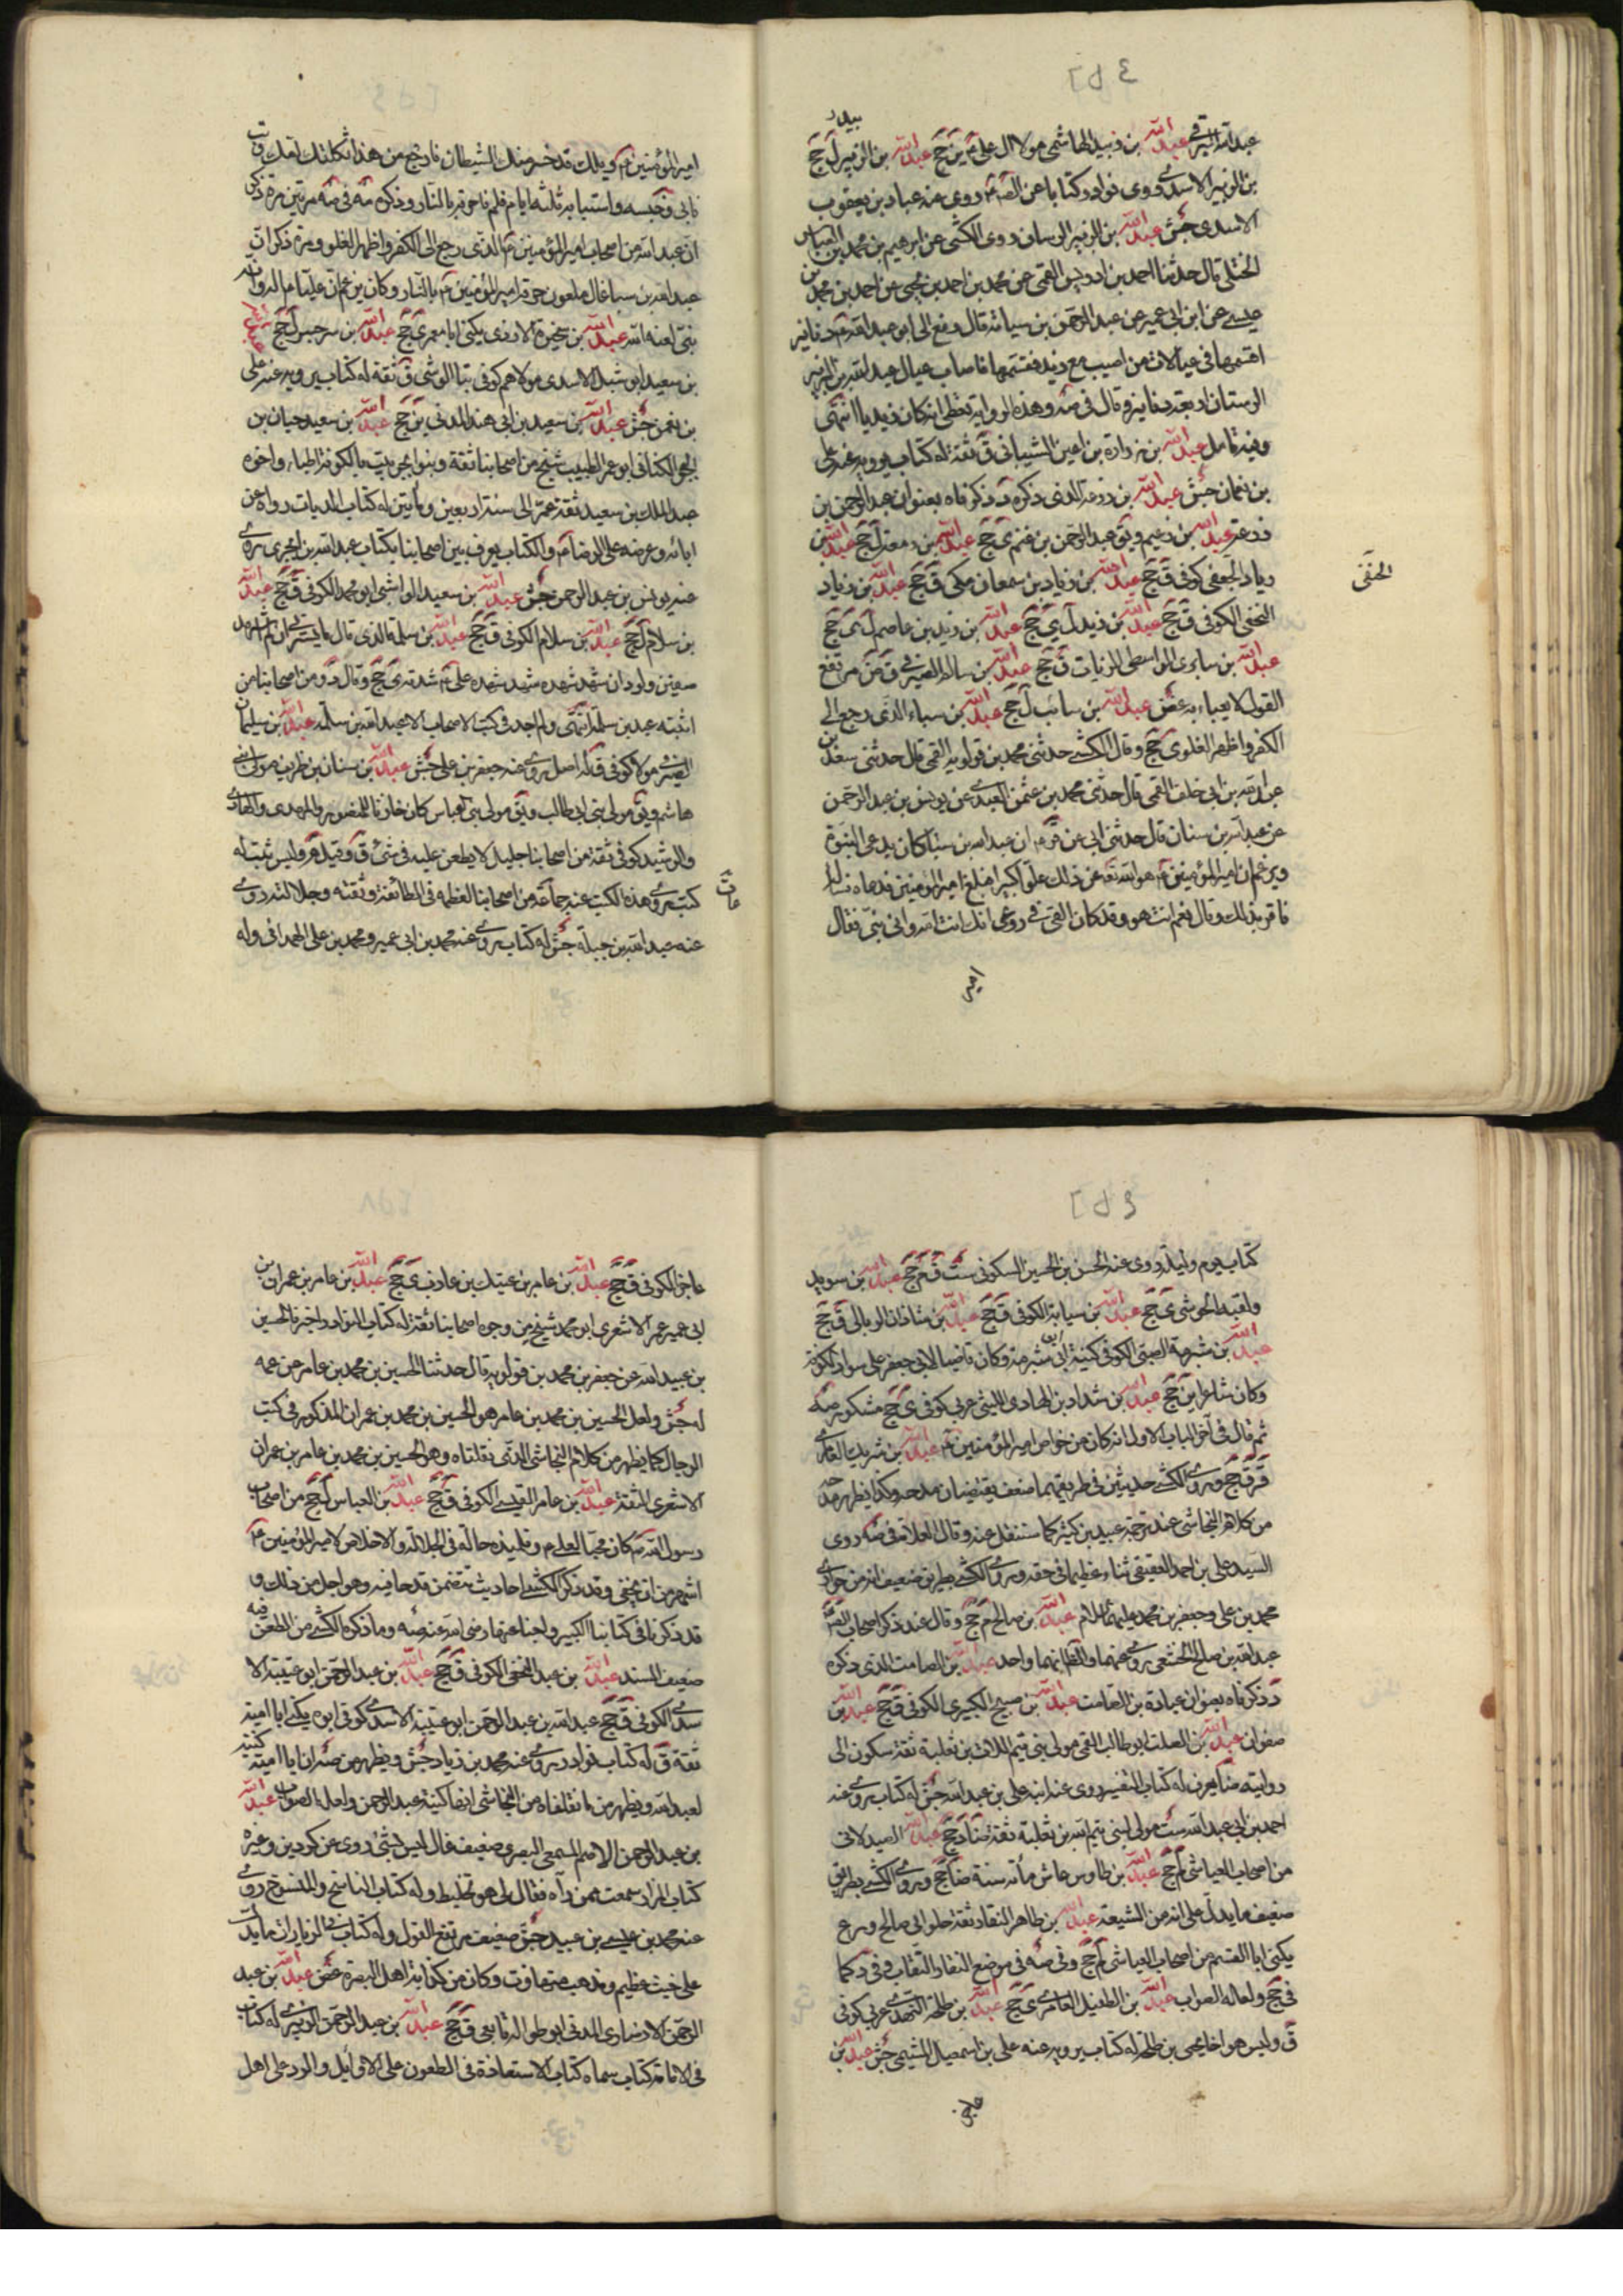 عبد الله البرقي عبد الله بن زبيد الهاشمي مولا آل علي ع ين جخ عبد الله بن الزبير ل جخ
بن الزبير الاسدي روى نوادر وكتابا عن الصم روى عنه عباد بن يعقوب
الاسدي جش عبد الله بن الزبير الرسان روى الكشي عن ابرهيم بن محمد بن العباس
الختلي قال حدثنا احمد بن ادريس القمي عن محمد بن احمد بن يحيى عن احمد بن محمد بن
عيسى عن ابن ابي عمير عن عبد الرحمن بن سيابة قال دفع الي ابو عبد الله ع دنانير
اقسمها في عيالات من اصيب مع زيد فقسمتها فاصاب عيال عبد الله بن الزبير
الرسان اربعة دنانير وقال في صه وهذه الرواية تعطي انه كان زيديا انتهى
وفيه تامل عبد الله بن زرارة بن اعين الشيباني ق ثقة له كتاب يرويه عنه علي
بن نعمان جش عبد الله بن زرعة الذي ذكره د ذكرناه بعنوان عبد الرحمن بن
زرعة عبد الله بن زغيم ويق عبد الرحمن بن غنم ي جخ عبد الله بن زمعة ل جخ عبد الله بن
زياد الجعفي كوفي ق جخ عبد الله بن زياد بن سمعان مكي ق جخ عبد الله بن زياد
النخعي الكوفي ق جخ عبد الله بن زيد ل ي جخ عبد الله بن زيد بن عاصم ل ي جخ
الحنفي
عبد الله بن سابري الواسطي الزيات ق جخ عبد الله بن سالم الصيرفي ق ض مرتفع
القول لا يعباء به غض عبد الله بن سائب ل جخ عبد الله بن سباء الذي رجع الى
الكفر واظهر الغلو ي جخ وقال الكشي حدثني محمد بن قولويه القمي قال حدثني سعد بن
عبد الله بن ابي خلف القمي قال حدثني محمد بن عثمن العبدي عن يونس بن عبد الرحمن
عن عبد الله بن سنان قال حدثني ابي عن قر ع ان عبد الله بن سبا كان يدعى النبوة
ويزعم ان امير المؤمنين ع هو الله تع عن ذلك علوا كبيرا فبلغ امير المؤمنين فدعاه فساله
فاقر بذلك وقال نعم انت هو وقد كان القي في روعي انك انت الله واني نبي فقال
امير
امير المؤمنين ع ويلك قد سخر منك الشيطان فارجع من هذا ثكلتك امك وتب
فابى فحبسه واستتابه ثلثة ايام فلم فاحرقه بالنار وذكره مه في صه مرتين مرة ذكر
ان عبد الله من اصحاب امير المؤمنين ع الذي رجع الى الكفر واظهر الغلو ومرة ذكر ان
عبد الله بن سبا غال ملعون حرقه امير المؤمنين ع بالنار وكان يزعم ان عليا اله وانه
نبي لعنه الله عبد الله بن سخبرة الازدي يكنى ابا معمر ي جخ عبد الله بن سرجس ل جخ عبد الله
بن سعيد ابو شبل الاسدي مولاهم كوفي بياع الوشي ق ثقة له كتاب يرويه عنه علي
بن نعمن جش عبد الله بن سعيد بن ابي هند المدني ين جخ عبد الله بن سعيد حيان بن
ابجر الكناني ابو عمر الطبيب شيخ من اصحابنا ثقة وبنو ابجر بيت بالكوفة اطباء واخوه
عبد الملك بن سعيد ثقة عمر الى سنة اربعين ومأتين له كتاب الديات رواه عن
ابائه وعرضه على الرضا ع والكتاب يعرف بين اصحابنا بكتاب عبد الله بن ابجر يروي
عنه يونس بن عبد الرحمن جش عبد الله بن سعيد الوابشي ابو محمد الكوفي ق جخ عبد الله
بن سلام ل جخ عبد الله بن سلام الكوفي ق جخ عبد الله بن سلمة الذي قال ما يسرني ان لم اشهد
صفين ولوددت ان كل مشهد شهده علي ع شهدته ي جخ وقال د ومن اصحابنا من
اثبته عبد بن سلمة انتهى ولم اجد في كتب الاصحاب الا عبد الله بن سلمة عبد الله بن سليمان
الصيرفي مولا كوفي ق له اصل يروي عنه جعفر بن علي جش عبد الله بن سنان بن طريف مولى بني
هاشم ويق مولى بني ابي طالب ويق مولى بني العباس كان خازنا للمنصور والمهدي والهادي
والرشيد كوفي ثقة من اصحابنا جليل لا يطعن عليه في شيء ق وقيل م وليس بثبت له
كتب روى هذه الكتب عنه جماعات من اصحابنا لعظمه في الطائفة وثقته وجلالته روى
عنه عبد الله بن جبلة جش له كتاب يروي عنه محمد بن ابي عمير ومحمد بن علي الهمداني وله
كتاب يوم وليلة روى عنه الحسن بن الحسين السكوني ست ق م جخ عبد الله بن سويد
ولقبه الحوشي ي جخ عبد الله بن سيابة الكوفي ق جخ عبد الله بن شاذان الوبالي ق جخ
عبد الله بن شبرمة الضبي الكوفي كنيته ابو شبرمة وكان قاضيا لابي جعفر على سواد الكوفة
وكان شاعرا ين جخ عبد الله بن شداد بن الهادي الليثي عربي كوفي ي جخ مشكور صه
ثم قال في آخر الباب الاول انه كان من خواص امير المؤمنين ع عبد الله بن شريك العامري
قر ق جخ وروى الكشي حديثين في طريقهما ضعف يقتضيان مدحه وكذا يظهر مدحه
من كلام النجاشي عند ترجمة عبيد بن كثير كما سننقل عنه وقال العلامة في صه روى
السيد علي بن احمد العقيقي ثناء عظيما في حقه وروى الكشي بطريق ضعيف انه من حواري
محمد بن علي وجعفر بن محمد عليهما السلام عبد الله بن صالح م جخ وقال عند ذكر اصحاب الضا
عبد الله بن صالح الخثعمي روى عنهما والظ انهما واحد عبد الله بن الصامت الذي ذكره
د ذكرناه بعنوان عبادة بن الصامت عبد الله بن صبيح البكيري الكوفي ق جخ عبد الله بن
صفوان عبد الله بن الصلت ابو طالب القمي مولى بني تيم اللات بن ثعلبة ثقة سكون الى
روايته ضا يعرف له كتاب التفسير روى عنه ابنه علي بن عبد الله جش له كتاب يروي عنه
احمد بن ابي عبد الله ست مولى لبني تيم الله بن ثعلبة ثقة ضا د جخ عبد الله الصيدلاني
من اصحاب العياشي لم جخ عبد الله بن طاوس عاش مأة سنة ضا جخ وروى الكشي بطريق
ضعيف ما يدل على انه من الشيعة عبد الله بن طاهر النقاد ثقة حلواني صالح ورع
يكنى ابا القسم من اصحاب العياشي لم جخ وفي صه في موضع النقاد النقاب وفي د كما
في جخ ولعله الصواب عبد الله بن الطفيل العامري ي جخ عبد الله بن طلحة النهدي عربي كوفي
ق وليس هو اخا يحيى بن طلحة له كتاب يرويه عنه علي بن اسمعيل الميثمي جش عبد الله بن
عاجز
عاجز الكوفي ق جخ عبد الله بن عامر بن عتيك بن عازب ي جخ عبد الله بن عامر بن عمران بن
ابي عمير عمر الاشعري ابو محمد شيخ من وجوه اصحابنا ثقة له كتاب النوادر اخبرنا الحسين
بن عبيد الله عن جعفر بن محمد بن قولويه قال حدثنا الحسين بن محمد بن عامر عن عمه
له جش ولعل الحسين بن محمد بن عامر هو الحسين بن محمد بن عمران المذكور في كتب
الرجال كما يظهر من كلام النجاشي الذي نقلناه وهو الحسين بن محمد بن عامر بن عمران
الاشعري الثقة عبد الله بن عامر القيسي الكوفي ق جخ عبد الله بن العباس ل جخ من اصحاب
رسول الله ص كان محبا لعلي ع وتلميذه حاله في الجلالة والاخلاص لامير المؤمنين ع
اشهر من ان يخفى وقد ذكر الكشي احاديث تتضمن قدحا فيه وهو اجل من ذلك و
قد ذكرنا في كتابنا الكبير واجبنا عنها رضى الله عنه صه وما ذكره الكشي من الطعن فيه
ضعيف السند عبد الله بن عبد النخعي الكوفي ق جخ عبد الله بن عبد الرحمن ابو عتيبة الا
سدي الكوفي ق جخ عبد الله بن عبد الرحمن ابو عتيبة الاسدي كوفي ابوه يكنى ابا امية
ثقة ق له كتاب نوادر يروي عنه محمد بن زياد جش ويظهر من صه ان ابا امية كنية
لعبد الله ويظهر من ما نقلناه من النجاشي انها كنية عبد الرحمن ولعله الصواب عبد الله
بن عبد الرحمن الاصم المسمعي البصري ضعيف غال ليس بشيء روى عن كردين وغيره
كتاب المزار سمعت ممن رآه فقال لي هو تخليط وله كتاب الناسخ والمنسوخ روى
عنه محمد بن عيسى بن عبيد جش ضعيف مرتفع القول وله كتاب في الزيارات ما يدل
على خبث عظيم ومذهب متهافت وكان من كذابة اهل البصرة غض عبد الله بن عبد
الرحمن الانصاري المدني ابو طوالة تابعي ق جخ عبد الله بن عبد الرحمن الزبيري له كتاب
في الامامة كتاب سماه كتاب الاستفادة في الطعون على الاوائل والرد على اهل